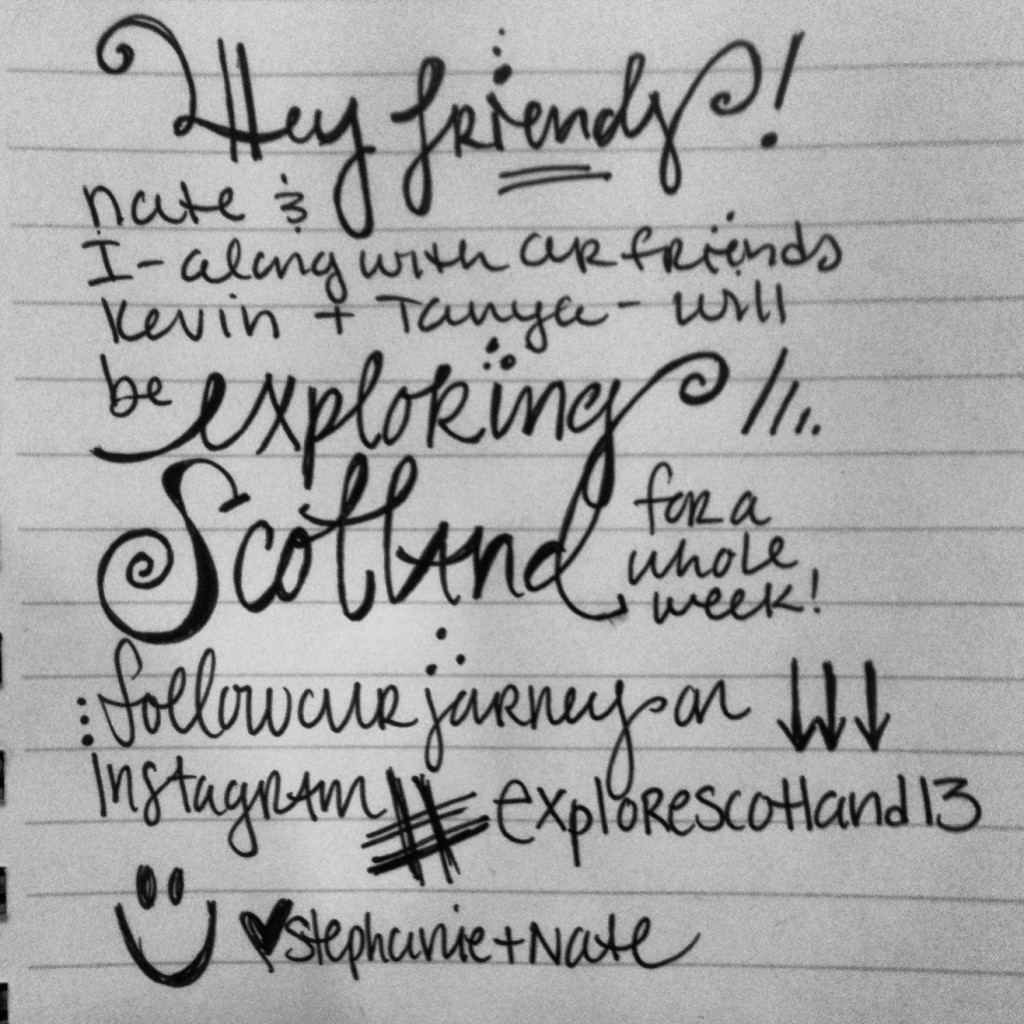 Hey friends!
nate &
I - along with our friends
Kevin + Tanya - will
be exploring
Scotland
for a
whole
week!
follow our journey on
Instagram #explorescotland13
♥ Stephanie + Nate